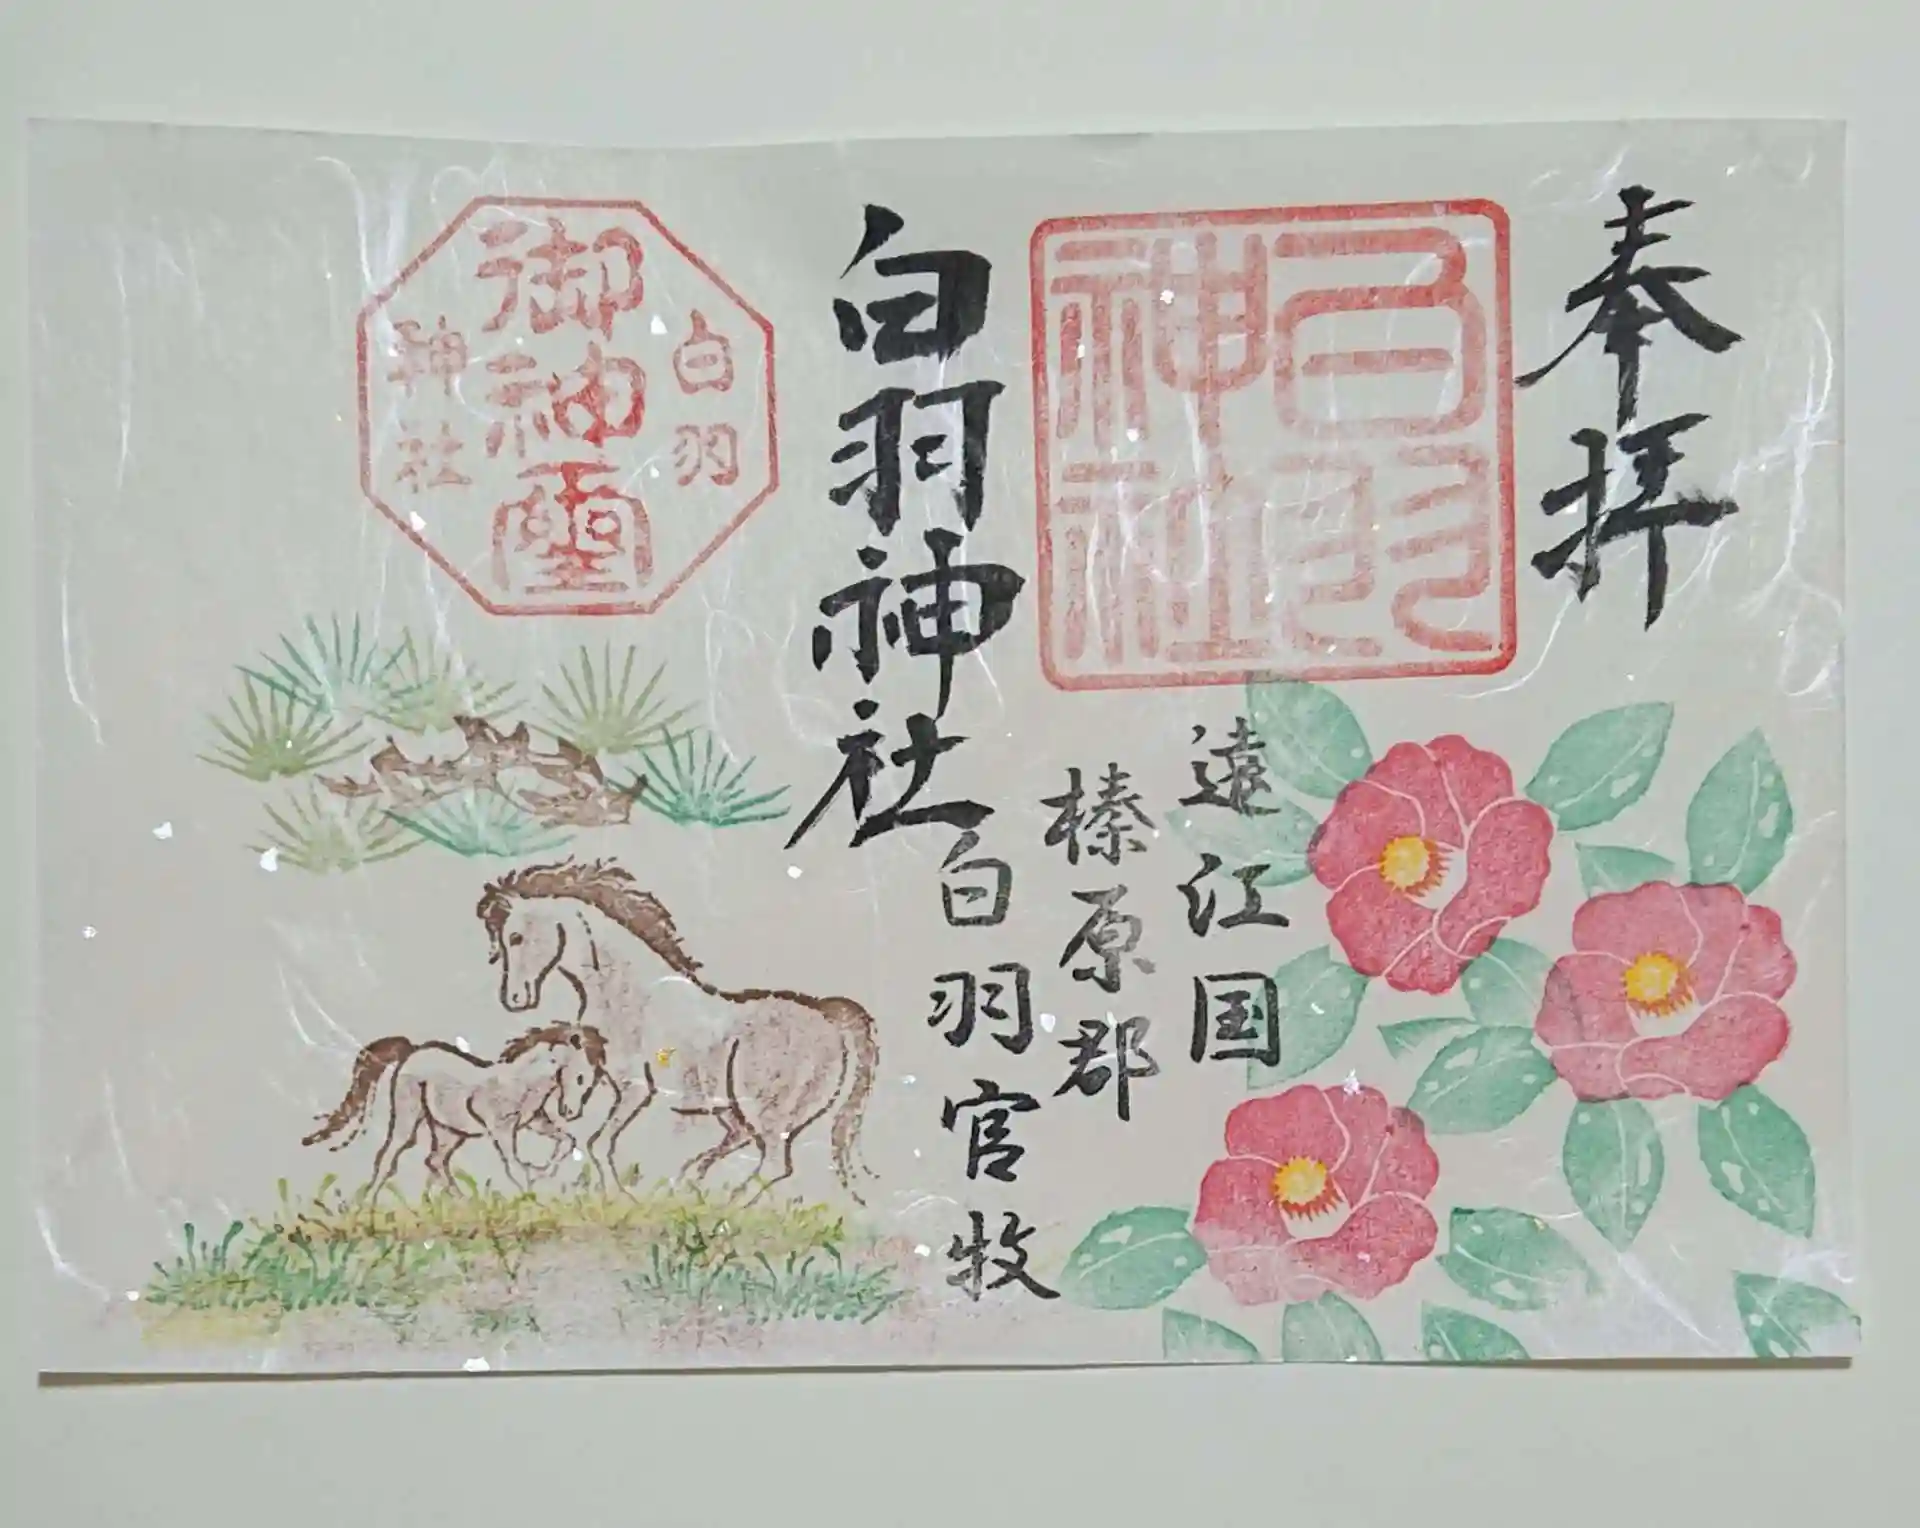 奉拝
白羽
神社
遠江国
榛原郡
白羽官牧
白羽神社
白羽
御神璽
神社